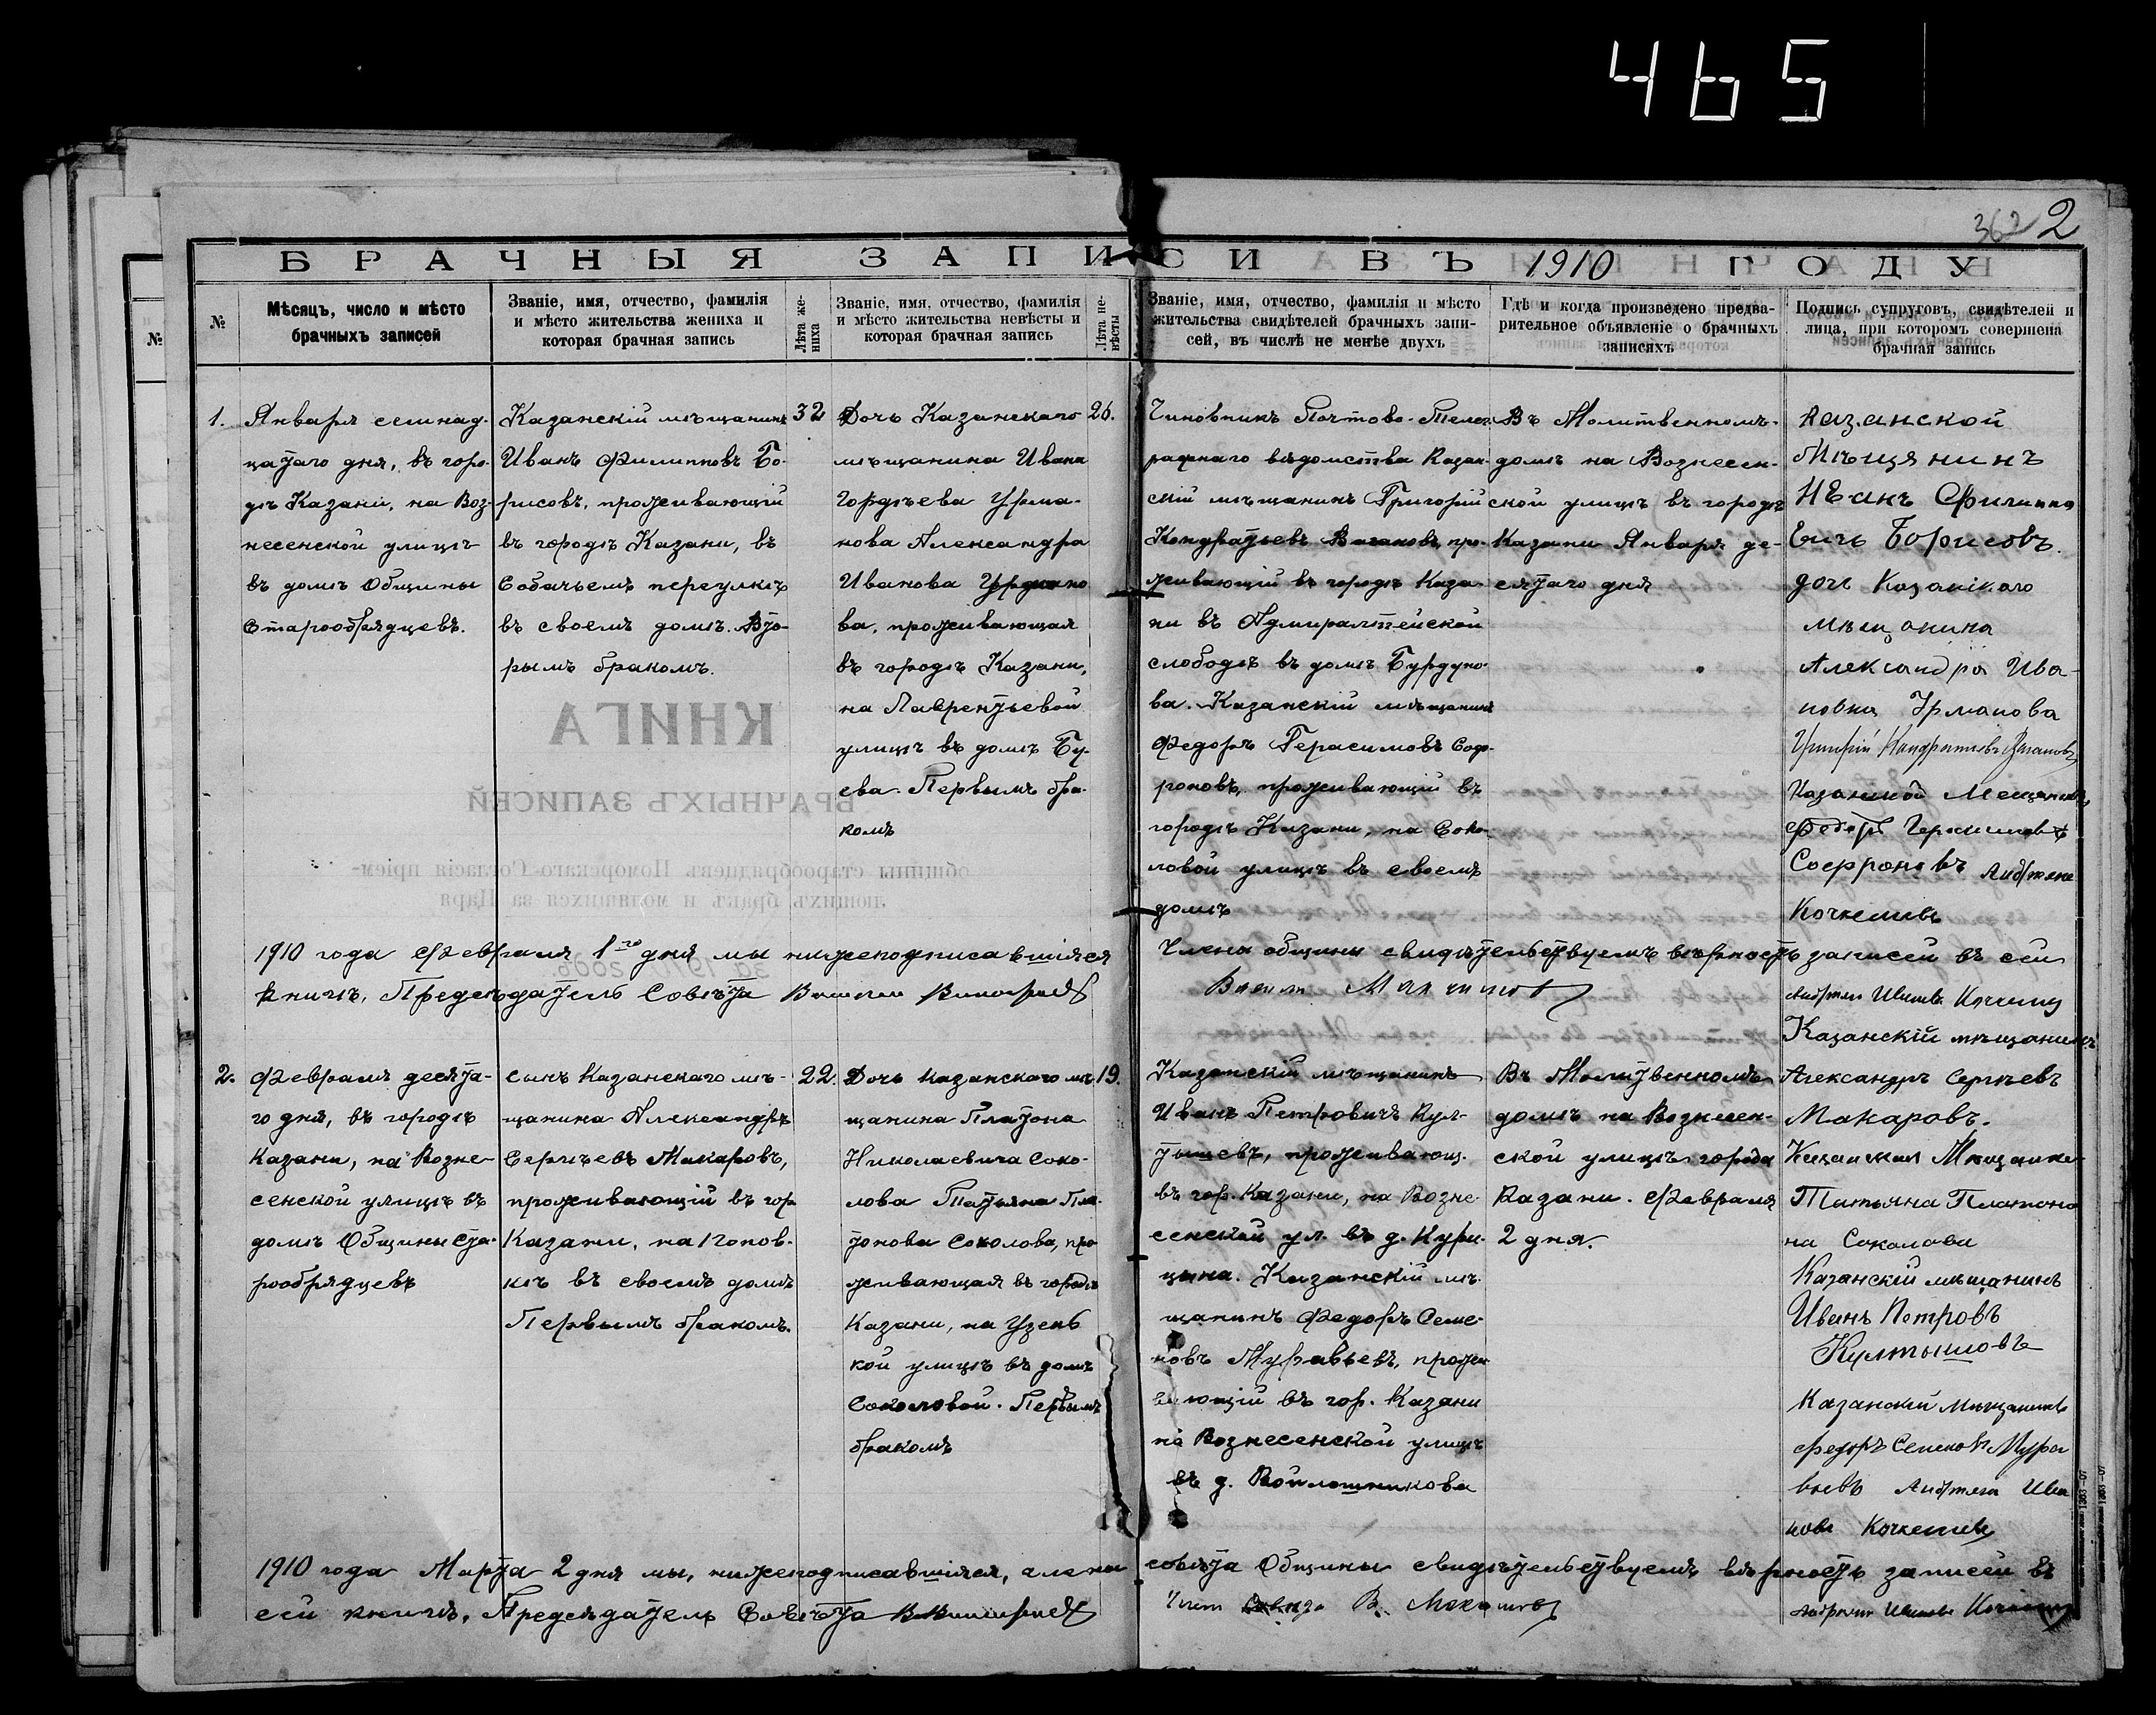 465
362 2
БРАЧНЫЯ ЗАПИСИ ВЪ 1910 ГОДУ
№
Мѣсяцъ, число и мѣсто
брачныхъ записей
Званіе, имя, отчество, фамилія
и мѣсто жительства жениха и
которая брачная запись
Лѣта же-
ниха
Званіе, имя, отчество, фамилія
и мѣсто жительства невѣсты и
которая брачная запись
Лѣта не-
вѣсты
Званіе, имя, отчество, фамилія и мѣсто
жительства свидѣтелей брачныхъ запи-
сей, въ числѣ не менѣе двухъ
Гдѣ и когда произведено предва-
рительное объявленіе о брачныхъ
записяхъ
Подпись супруговъ, свидѣтелей и
лица, при которомъ совершена
брачная запись
№
1.
Января семнад-
цатаго дня, въ горо-
дѣ Казани, на Воз-
несенской улицѣ
въ домѣ Общины
Старообрядцевъ.
Казанскій мѣщанинъ
Иванъ Филипповъ Бо-
рисовъ, проживающій
въ городѣ Казани, въ
Собачьемъ переулкѣ
въ своемъ домѣ. Вто-
рымъ бракомъ.
32
Дочь Казанскаго
мѣщанина Ивана
Гордѣева Урма-
нова Александра
Иванова
ва, проживающая
въ городѣ Казани,
на Лаврентьевой
улицѣ въ домѣ Бу-
ева. Первымъ бра-
комъ
26.
Чиновникъ Почтово-Телег-
рафнаго вѣдомства Казан-
скій мѣщанинъ Григорій
Кондратьевъ Вагановъ, про-
живающій въ городѣ Каза-
ни въ Адмиралтейской
слободѣ въ домѣ Бурдуко-
ва. Казанскій мѣщанинъ
Федоръ Герасимовъ Соф-
роновъ, проживающій въ
городѣ Казани, на Соко-
ловой улицѣ въ своемъ
домѣ
Въ Молитвенномъ
домѣ на Вознесен-
ской улицѣ въ городѣ
Казани Января де-
сятаго дня
Казанской
Мѣщянинъ
Иванъ Филипо
вичь Борисовъ.
дочь Казанскаго
мѣщанина
Александра Ива-
новна Урманова
Григорій Кандратьевъ Вагановъ
Казанской Мещанинъ
Федоръ Герасимовъ
Софроновъ
1910 года Февраля 1го дня мы нижеподписавшіяся
Члены общины свидѣтельствуемъ вѣрность записей въ сей
книгѣ, Предсѣдатель Совѣта
2.
Февраля десята-
го дня, въ городѣ
Казани, на Возне-
сенской улицѣ въ
домѣ Общины Ста-
рообрядцевъ
сынъ Казанскаго мѣ-
щанина Александръ
Сергѣевъ Макаровъ,
проживающій въ гор.
Казани, на
въ своемъ домѣ
Первымъ бракомъ.
22.
Дочь казанскаго мѣ-
щанина Платона
Николаевича Соко-
лова Татьяна Пла-
тонова Соколова, про-
живающая въ городѣ
Казани, на Узень
кой улицѣ въ домѣ
Соколовой. Первымъ
бракомъ
19.
Казанскій мѣщанинъ
Иванъ Петровичъ Кул-
тышевъ, проживающ.
въ гор. Казани, на Возне-
сенской ул. въ д. Кури-
цына. Казанскій мѣ-
щанинъ Федоръ Семе-
новъ Муравьевъ, прожи
вающій въ гор. Казани
на Вознесенской улицѣ
въ д. Войлошникова
Въ Молитвенномъ
домѣ на Вознесен-
ской улицѣ города
Казани. Февраля
2 дня.
Казанскій мѣщанинъ
Александръ Сергѣевъ
Макаровъ.
Казанская Мещанка
Татьяна Платоно
на Соколова
Казанскій мѣщанинъ
Иванъ Петровъ
Култышовъ
Казанскій мѣщанинъ
Федоръ Семеновъ Мура
вьевъ
1910 года Марта 2 дня мы, нижеподписавшіяся, члены совѣта Общины свидѣтельствуемъ вѣрность записей въ
сей книгѣ, Предсѣдатель Совѣта